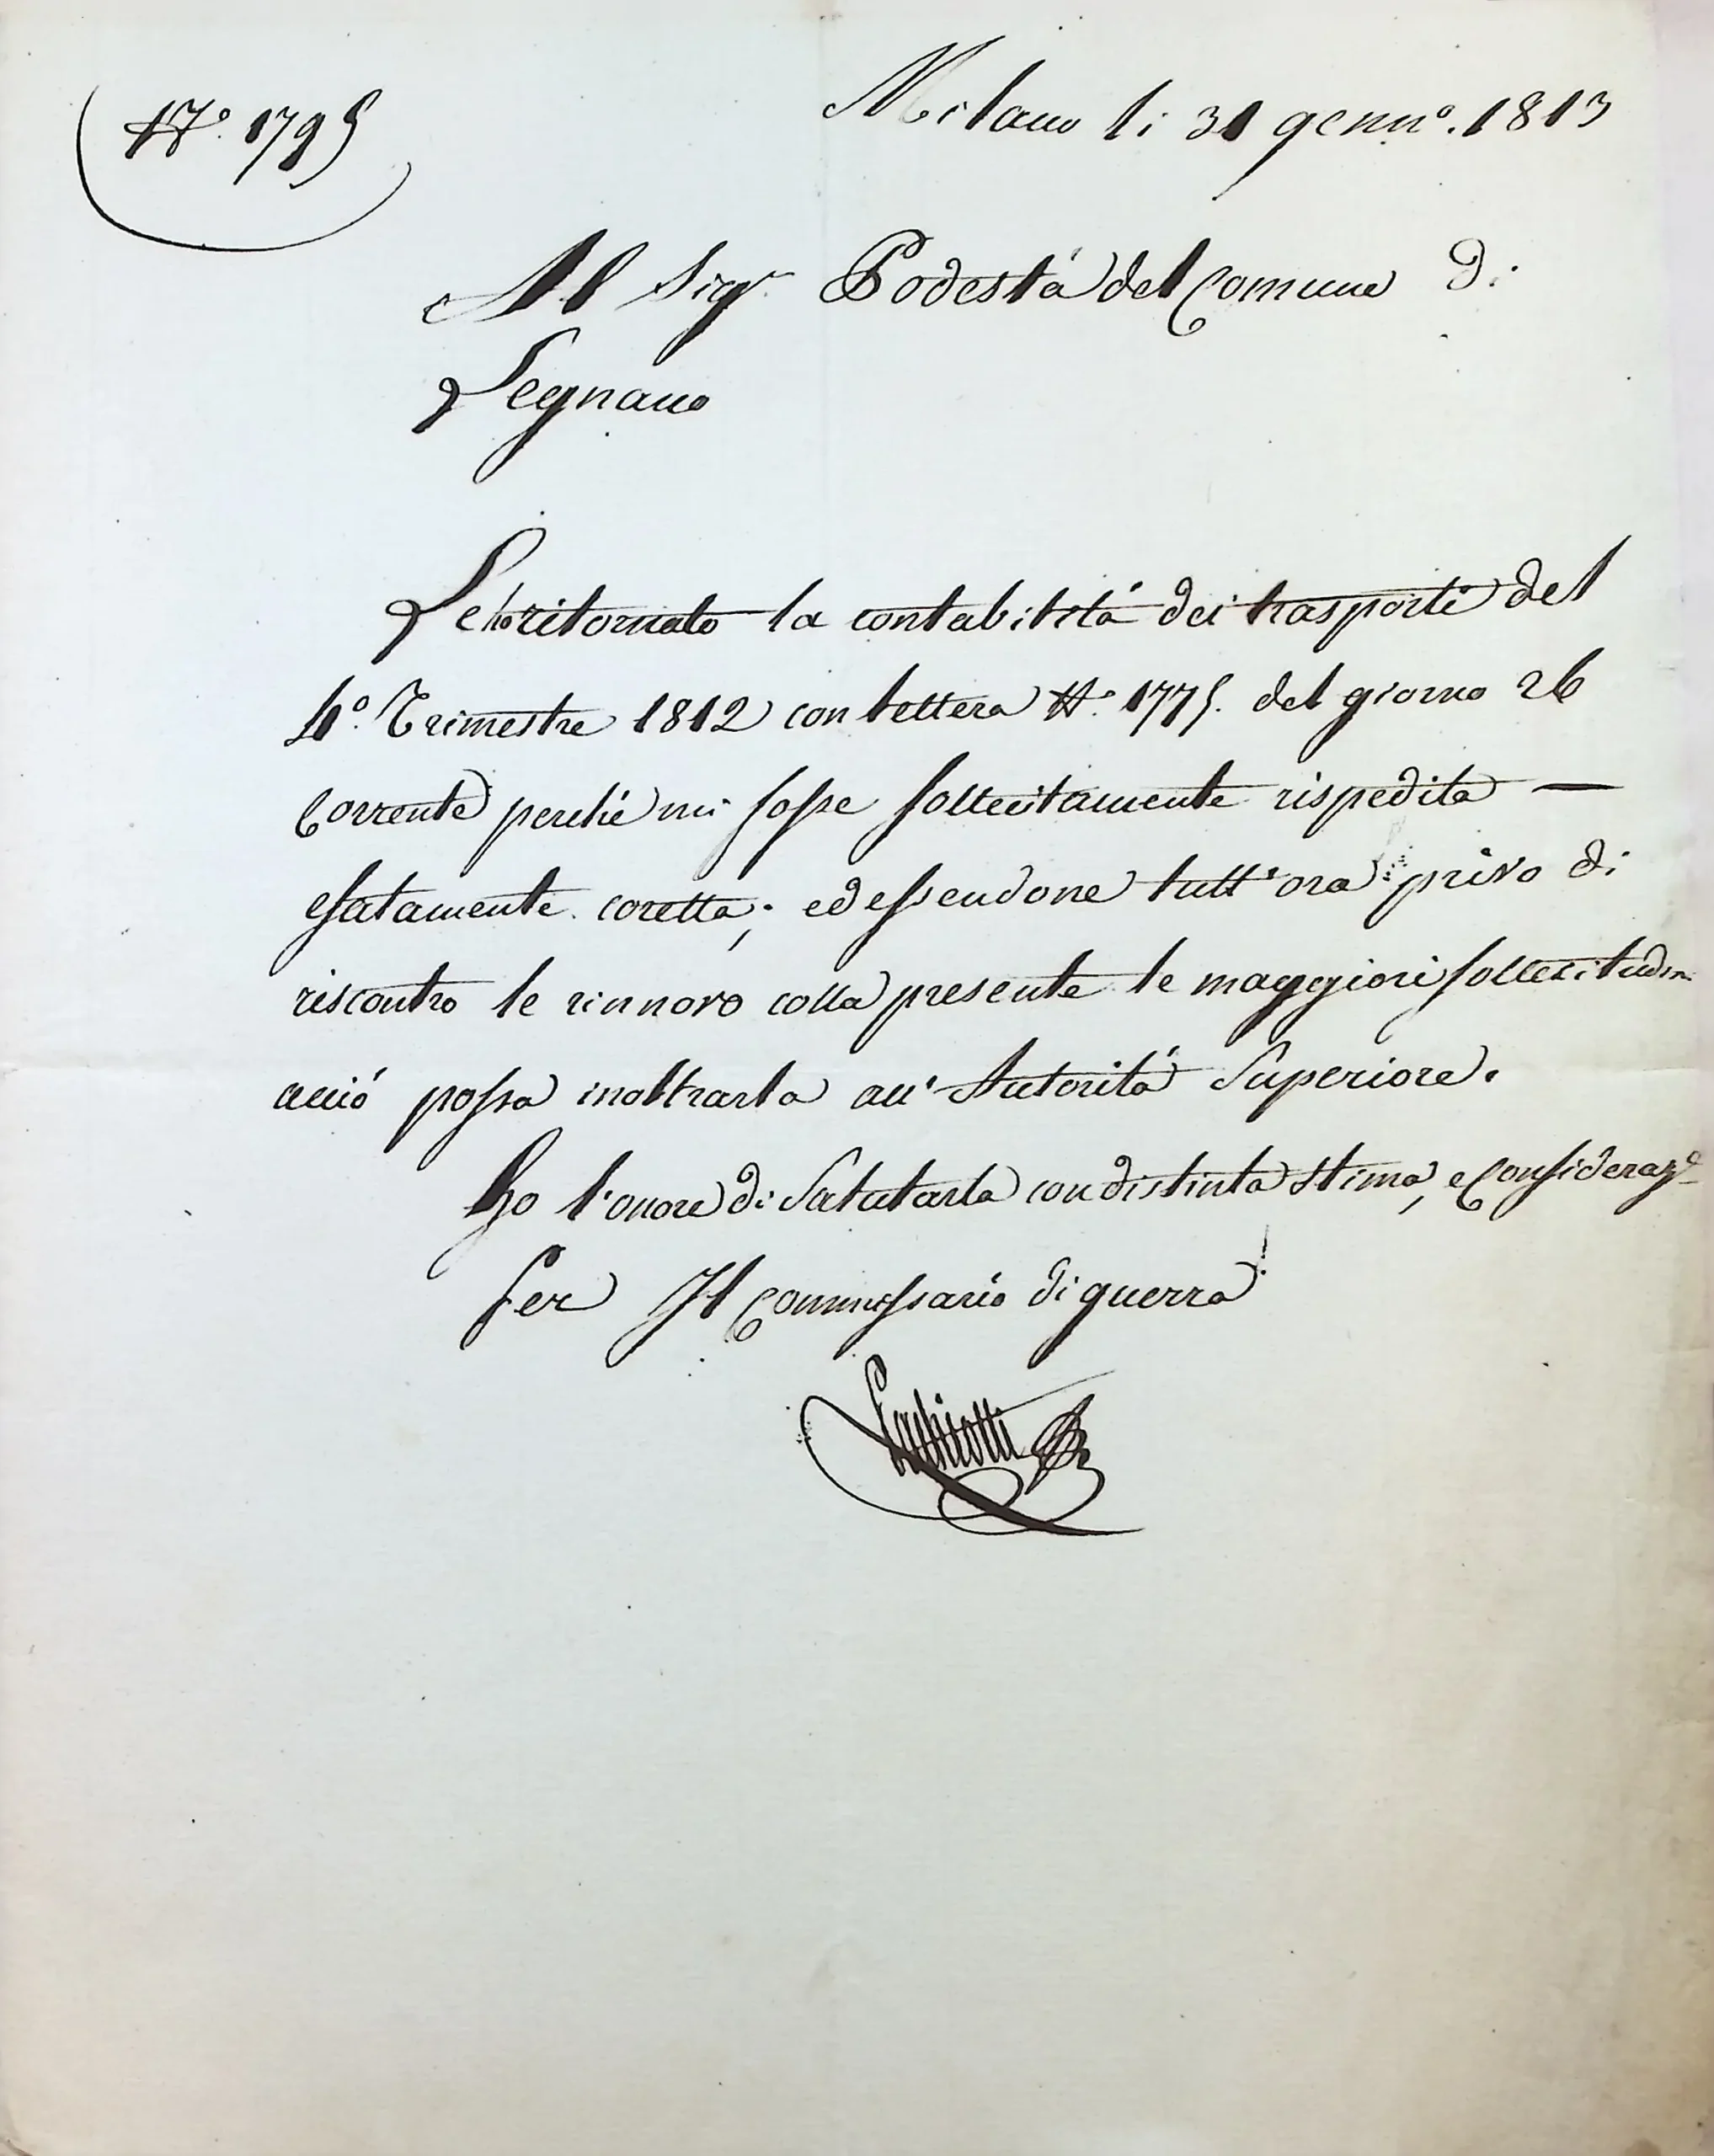 N.º 1795
Milano li 31 genn.º 1813
Al Sigr. Podestá del Comune di
Legnano
Le ho ritornato la contabilitá dei trasporti del
4º. Trimestre 1812 con lettera N.º 1775. del giorno 26
Corrente perché mi fosse sollecitamente rispedita —
esatamente coretta; ed essendone tutt'ora privo di
riscontro le rinnovo colla presente le maggiori sollecitudin
acció possa inoltrarla all'Autoritá Superiore.
Ho l'onore di Salutarla con distinta stima, e Considerazᵉ
Per Il Commissario di guerra